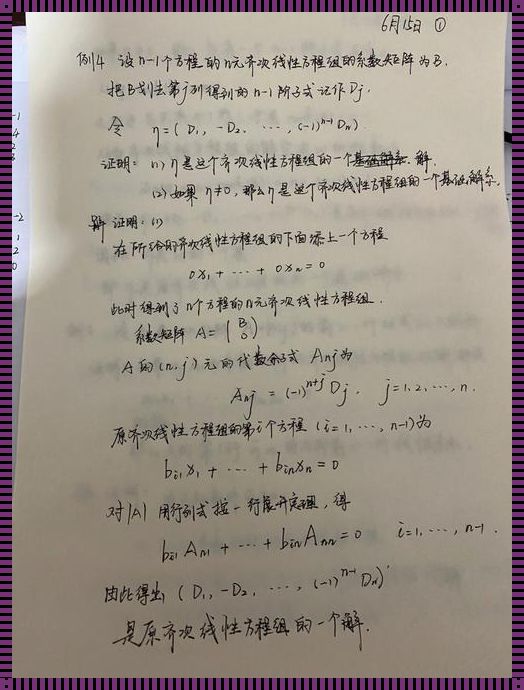 6月15日 ①
例4 设n-1个方程的n元齐次线性方程组的系数矩阵为B.
把B划去第j列得到的n-1阶子式记作Dj.
令 η=(D₁, -D₂, ⋯, (-1)ⁿ⁻¹Dₙ).
证明: (1) η是这个齐次线性方程组的一个 解.
(2) 如果 η≠0, 那么η是这个齐次线性方程组的一个基础解系.
证明: (1)
在所给的齐次线性方程组的下面添上一个方程
0x₁ + ⋯ + 0xₙ = 0
此时得到了n个方程的n元齐次线性方程组.
系数矩阵 A = (B 0)
A的(n,j)元的代数余子式 Anj为
Anj = (-1)ⁿ⁺ʲ Dj, j=1,2,⋯,n.
原齐次线性方程组的第i个方程 (i=1,⋯,n-1)为
bi₁x₁ + ⋯ + binxn = 0
对|A| 用行列式按一行展开定理, 得
bi₁An₁ + ⋯ + binAnn = 0 i=1,⋯,n-1.
由此得出 (D₁, -D₂, ⋯, (-1)ⁿ⁻¹Dₙ)'
是原齐次线性方程组的一个解.
-1
4
2
3
-2
1
2
0